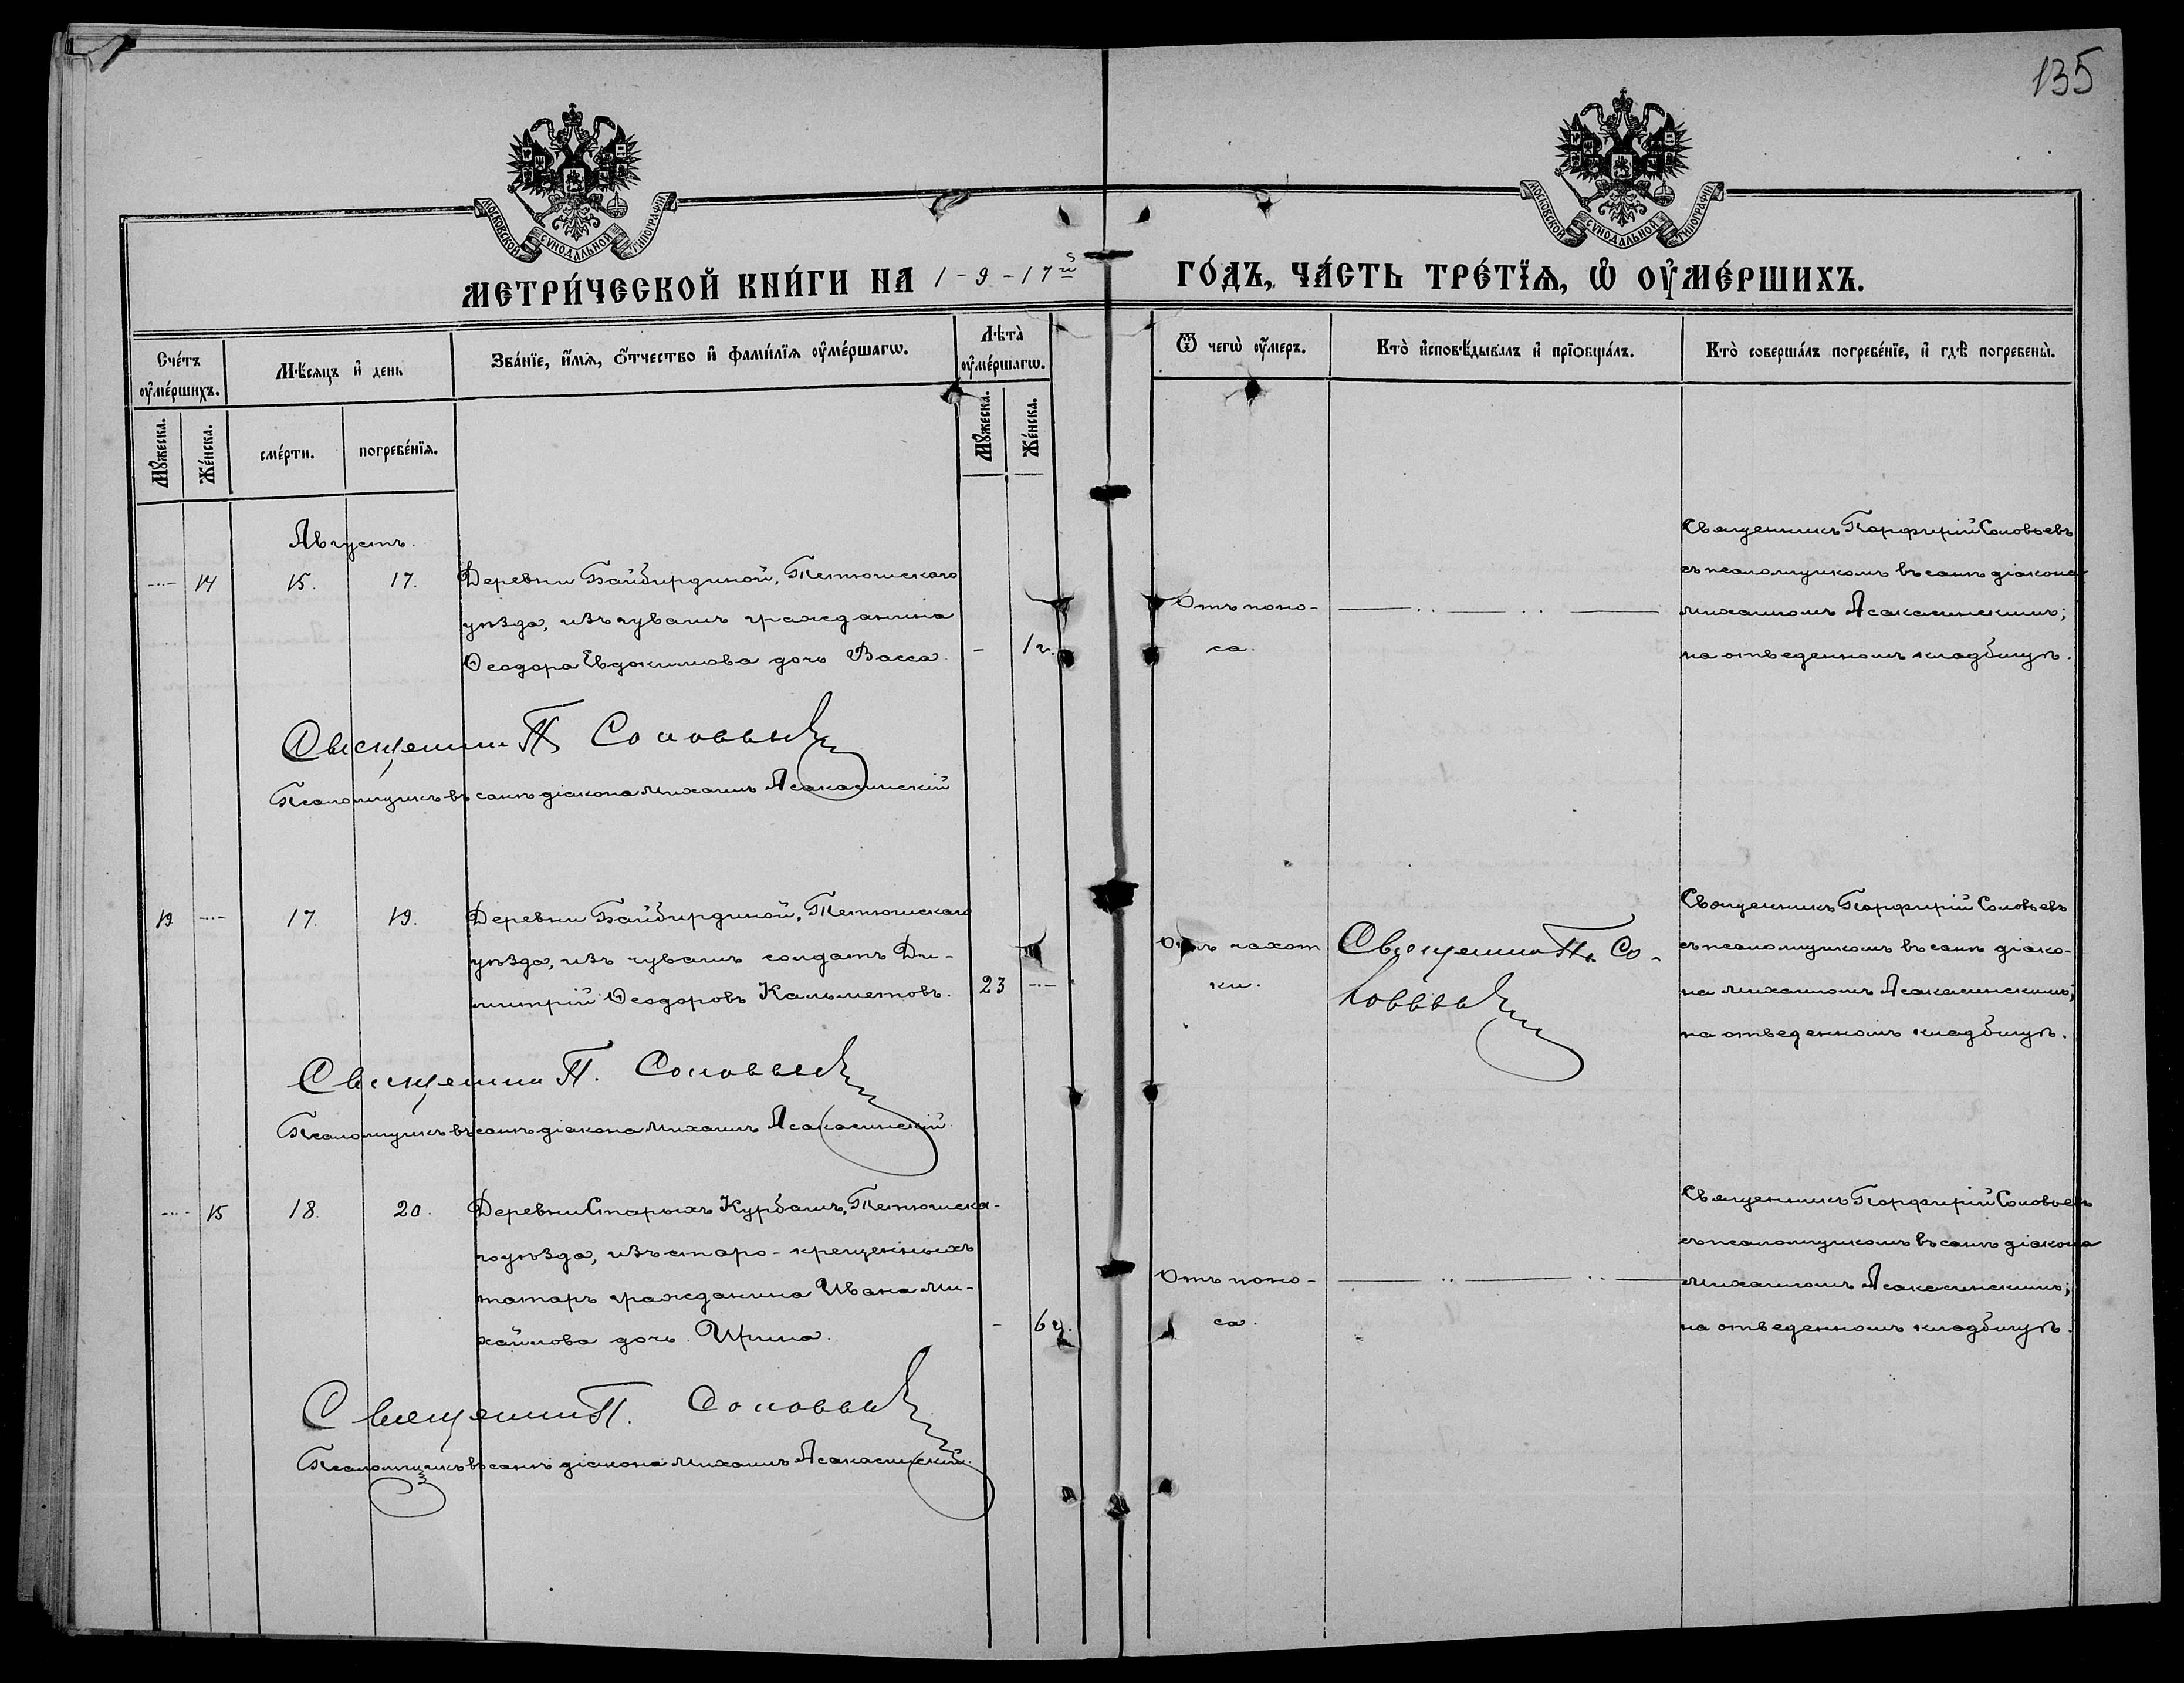 135
МОСКОВСКОЙ СѴНОДАЛЬНОЙ ТИПОГРАФІИ
МОСКОВСКОЙ СѴНОДАЛЬНОЙ ТИПОГРАФІИ
МЕТРИ́ЧЕСКОЙ КНИ́ГИ НА 1-9-17й ГО́ДЪ, ЧА́СТЬ ТРЕ́ТЇѦ, Ѡ҆ ОУ҆МЕ́РШИХЪ.
Сче́тъ оу҆ме́ршихъ.
Мѣ́сяцъ и҆ день
Зва́нїе, и҆́мѧ, ѻ҆́тчество и҆ фами́лїѧ оу҆ме́ршагѡ.
Лѣта̀ оу҆ме́ршагѡ.
Ѿ чегѡ̀ оу҆́меръ.
Кто̀ и҆сповѣ́дывалъ и҆ прїѻбща́лъ.
Кто̀ соверша́лъ погребе́нїе, и҆ гдѣ̀ погребены̀.
Мꙋ́жеска.
Же́нска.
сме́рти.
погребе́нїѧ.
Мꙋ́жеска.
Же́нска.
Августъ.
14 15. 17. Деревни Байбирдиной, Тетюшскаго
уѣзда, изъ чувашъ гражданина
Ѳеодора Евдокимова дочь Васса.
- 1 г.
Отъ поно-
са.
Священникъ Порфирій Соловьевъ
съ псаломщикомъ въ санѣ діакона
Михаиломъ Асакасинскимъ;
на отведенномъ кладбищѣ.
Священник П. Соловьев
Псаломщикъ въ санѣ діакона Михаилъ Асакасинскій
19 17. 19. Деревни Байбирдиной, Тетюшскаго
уѣзда, изъ чувашъ солдатъ Ди-
митрій Ѳеодоровъ Кальметовъ.
23
Отъ чахот
ки.
Священник П. Со-
ловьев
Священникъ Порфирій Соловьевъ
съ псаломщикомъ въ санѣ діако-
на Михаиломъ Асакасинскимъ;
на отведенномъ кладбищѣ.
Священник П. Соловьев
Псаломщикъ въ санѣ діакона Михаилъ Асакасинскій.
15 18. 20. Деревни Старыхъ Курбашъ, Тетюшска-
го уѣзда, изъ старо-крещенныхъ
татаръ гражданина Ивана Ми-
хайлова дочь Ирина.
-
Отъ поно-
са.
Священникъ Порфирій Соловьевъ
съ псаломщикомъ въ санѣ діакона
Михаиломъ Асакасинскимъ;
на отведенномъ кладбищѣ.
Священник П. Соловьев
Псаломщикъ въ санѣ діакона Михаилъ Асакасинскій.